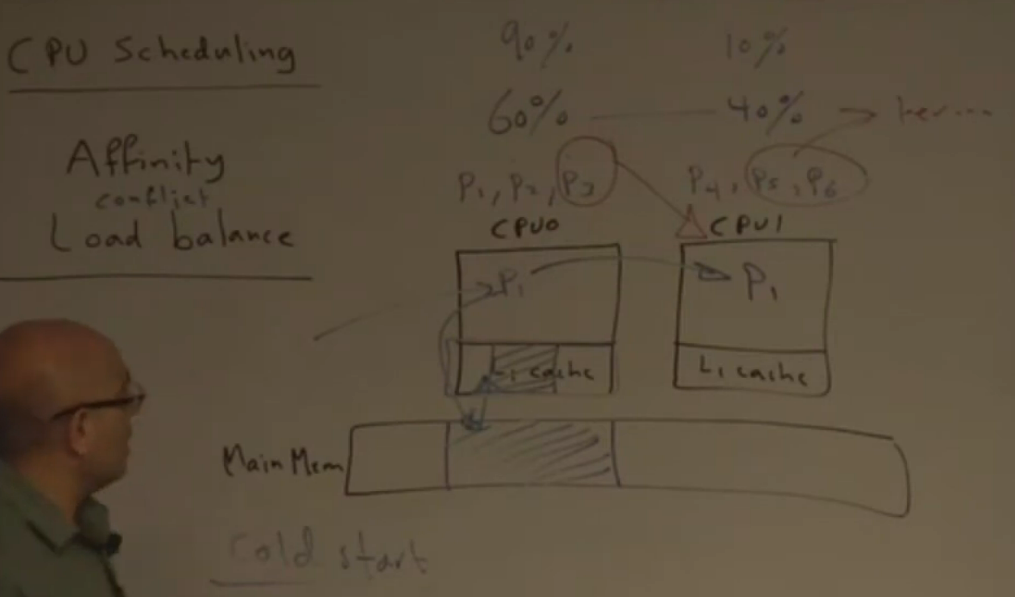 CPU Scheduling
Affinity
conflict
Load balance
90% 10%
60% 40%
P1, P2, P3 P4, P5, P6
CPU0 CPU1
P1 P1
L1 cache L1 cache
Main Mem
Cold start